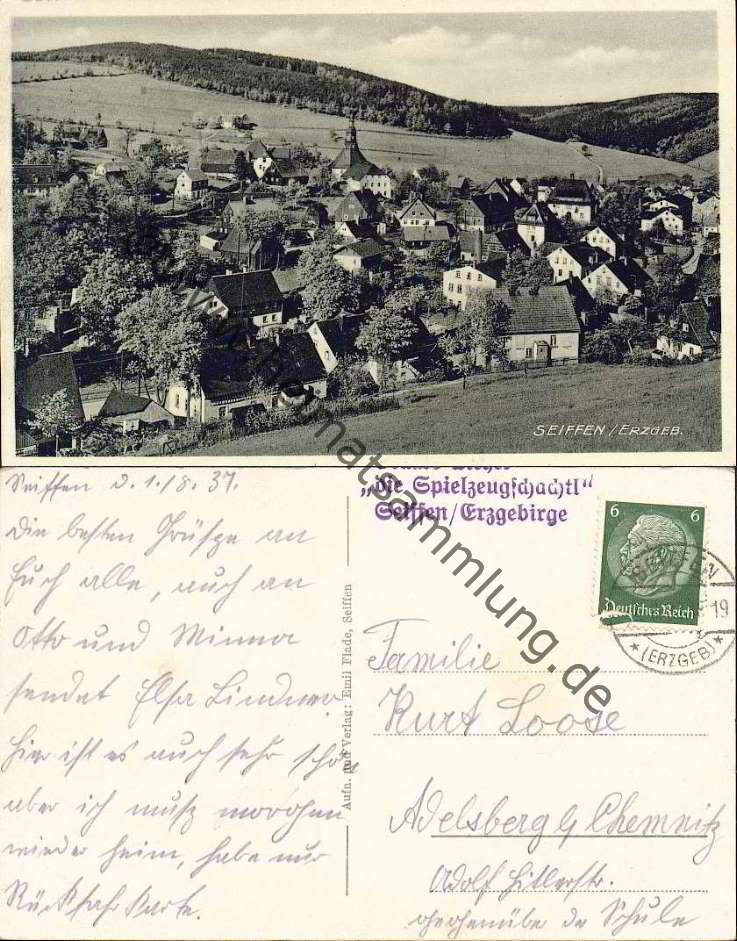 SEIFFEN / ERZGEB.
Seiffen d. 1./8. 37.
Die besten Grüsze an
Euch alle, auch an
Otto und Minna
sendet Elsa Lindner.
Hier ist es auch sehr schön
aber ich musz morgen
wieder heim, habe nur
Rückfahrkarte.
Aufn. und Verlag: Emil Flade, Seiffen
„die Spielzeugschachtl"
Seiffen/Erzgebirge
6 6
Deutsches Reich
19
*(ERZGEB)*
Familie
Kurt Loose
Adelsberg b/ Chemnitz
Adolf Hitlerstr.
gegenüber der Schule
Heimatsammlung.de